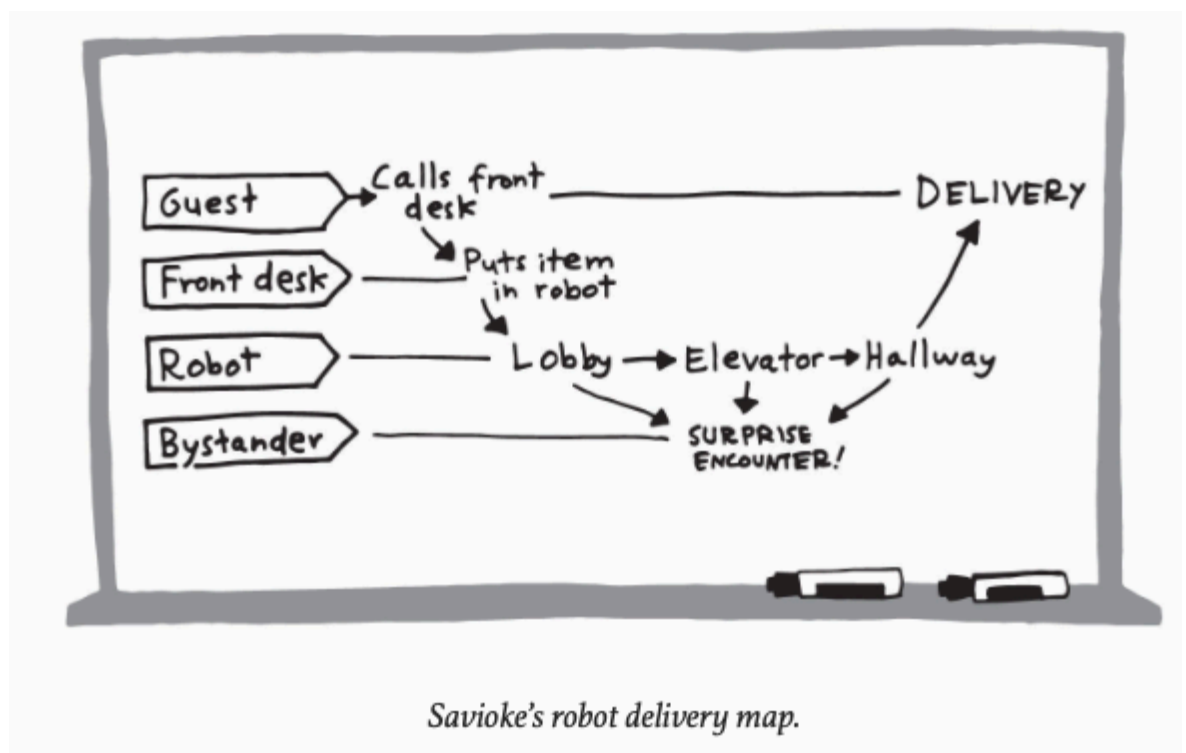 Guest
Calls front
desk
DELIVERY
Front desk
Puts item
in robot
Robot
Lobby
Elevator
Hallway
Bystander
SURPRISE
ENCOUNTER!
Savioke’s robot delivery map.